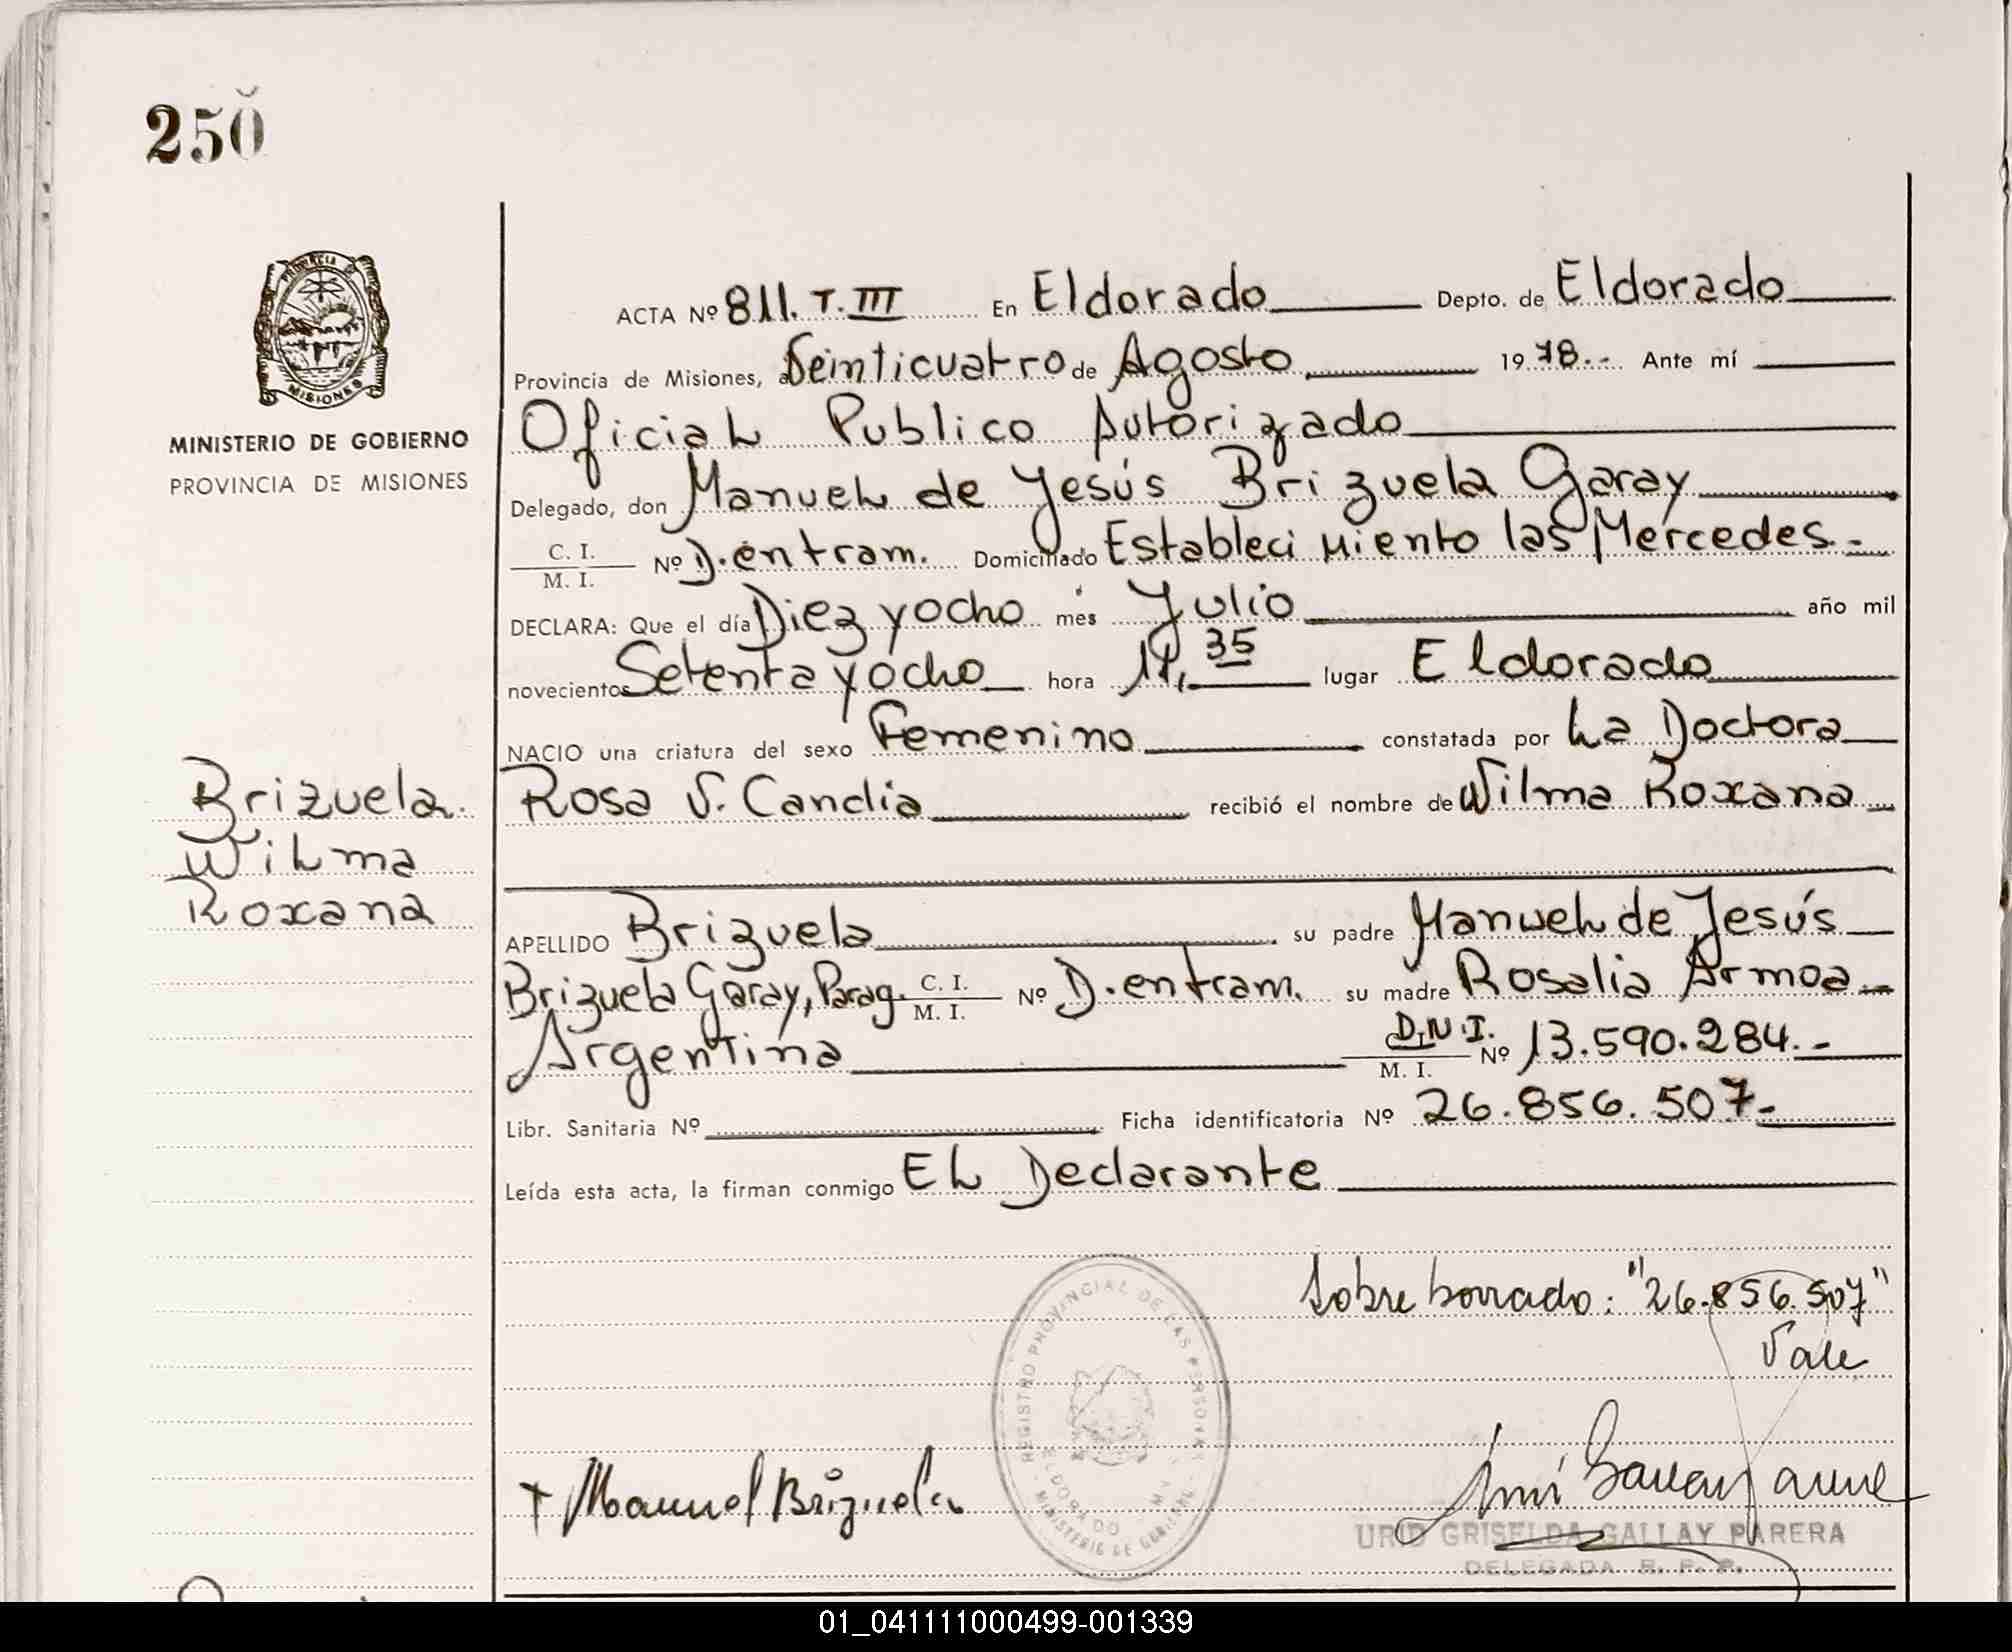 250
MINISTERIO DE GOBIERNO
PROVINCIA DE MISIONES
Brizuela
Wilma
Roxana
ACTA Nº 811. T. III En Eldorado Depto. de Eldorado
Provincia de Misiones, a Veinticuatro de Agosto 1978.- Ante mí
Oficial Publico Autorizado
Delegado, don Manuel de Jesús Brizuela Garay
C. I.
M. I. Nº D. en tram. Domiciliado Establecimiento las Mercedes.-
DECLARA: Que el día Diez y ocho mes Julio año mil
novecientos Setenta y ocho hora 11,35 lugar Eldorado
NACIO una criatura del sexo Femenino constatada por La Doctora
Rosa V. Candia recibió el nombre de Wilma Roxana
APELLIDO Brizuela su padre Manuel de Jesús
Brizuela Garay, Parag. C. I. M. I. Nº D. en tram. su madre Rosalia Armoa
Argentina D.N.I. M. I. Nº 13.590.284.-
Libr. Sanitaria Nº Ficha identificatoria Nº 26.856.507-
Leída esta acta, la firman conmigo El Declarante
Sobre borrado: "26.856.507"
Vale
REGISTRO PROVINCIAL DE LAS PERSONAS
ELDORADO
MINISTERIO DE GOBIERNO
+ Manuel Brizuela
GRISELDA GALLAY PARERA
DELEGADA R. P. P.
01_041111000499-001339